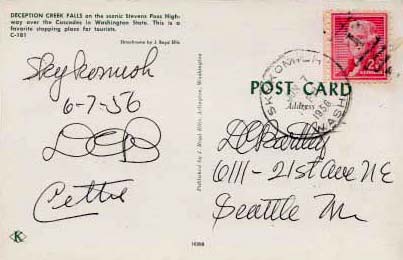 DECEPTION CREEK FALLS on the scenic Stevens Pass High-
way over the Cascades in Washington State. This is a
favorite stopping place for tourists.
C-181
Ektachrome by J. Boyd Ellis
Skykomish
6-7-56
DCB
Published by J. Boyd Ellis, Arlington, Washington
K
POST CARD
Address
SKYKOMISH
WASH
1956
2¢
6111-21st Ave NE
Seattle